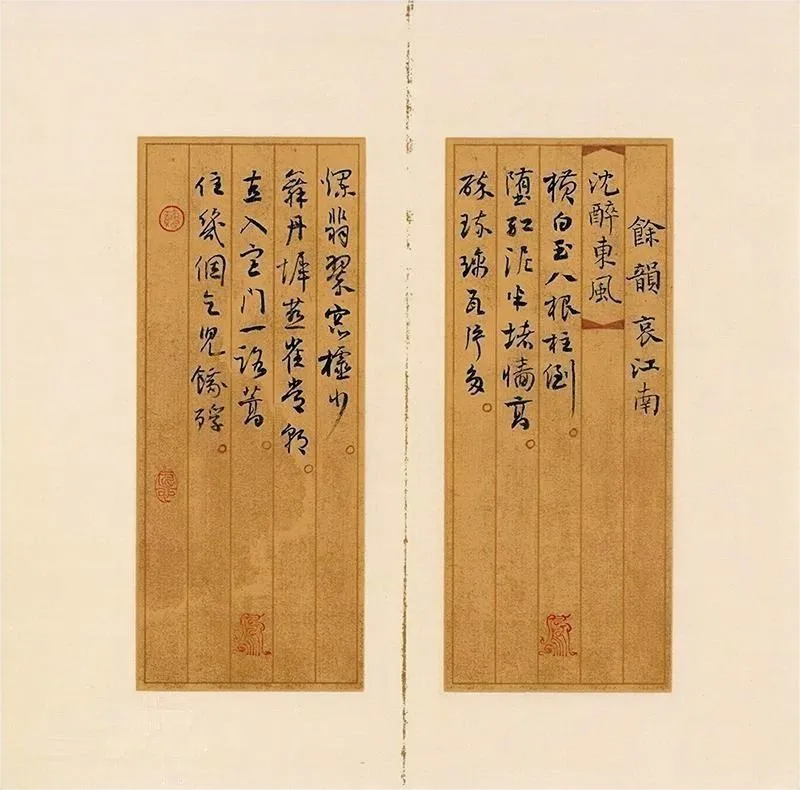 餘韻 哀江南
沈醉東風
橫白玉八根柱倒。
墮紅泥半堵墻高。
碎琉璃瓦片多。
爛翡翠窗櫺少。
舞丹墀燕雀常朝。
直入宮門一路蒿。
住幾個乞兒餓殍。